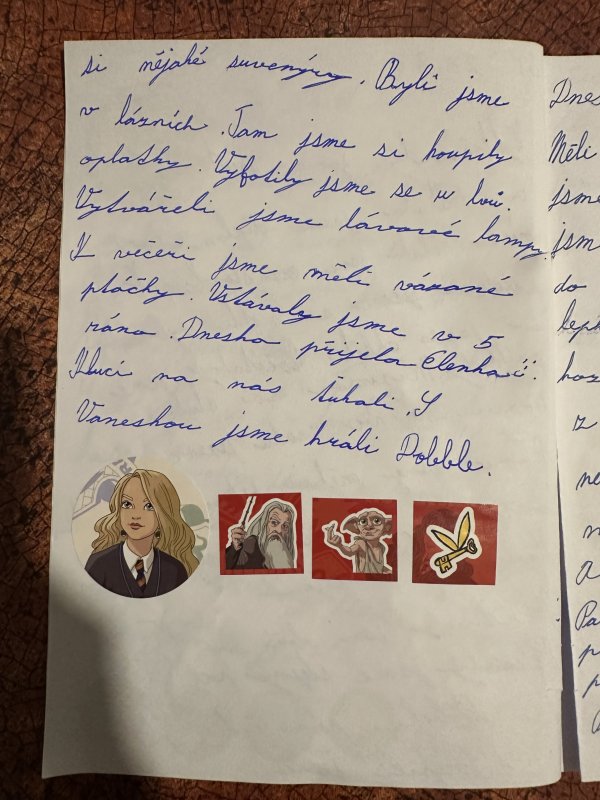 si nějaké suvenýry. Byli jsme
v lázních. Tam jsme si koupily
oplatky. Vyfotily jsme se u lvů.
Vytvářeli jsme lávové lampy
K večeři jsme měli vázané
ptáčky. Vstávaly jsme v 5
ráno. Dneska přijela Elenka
Kluci na nás ťukali. S
Vaneskou jsme hráli Dobble.
Dnes
Měli
jsme
jsm
do
lep
z
ne